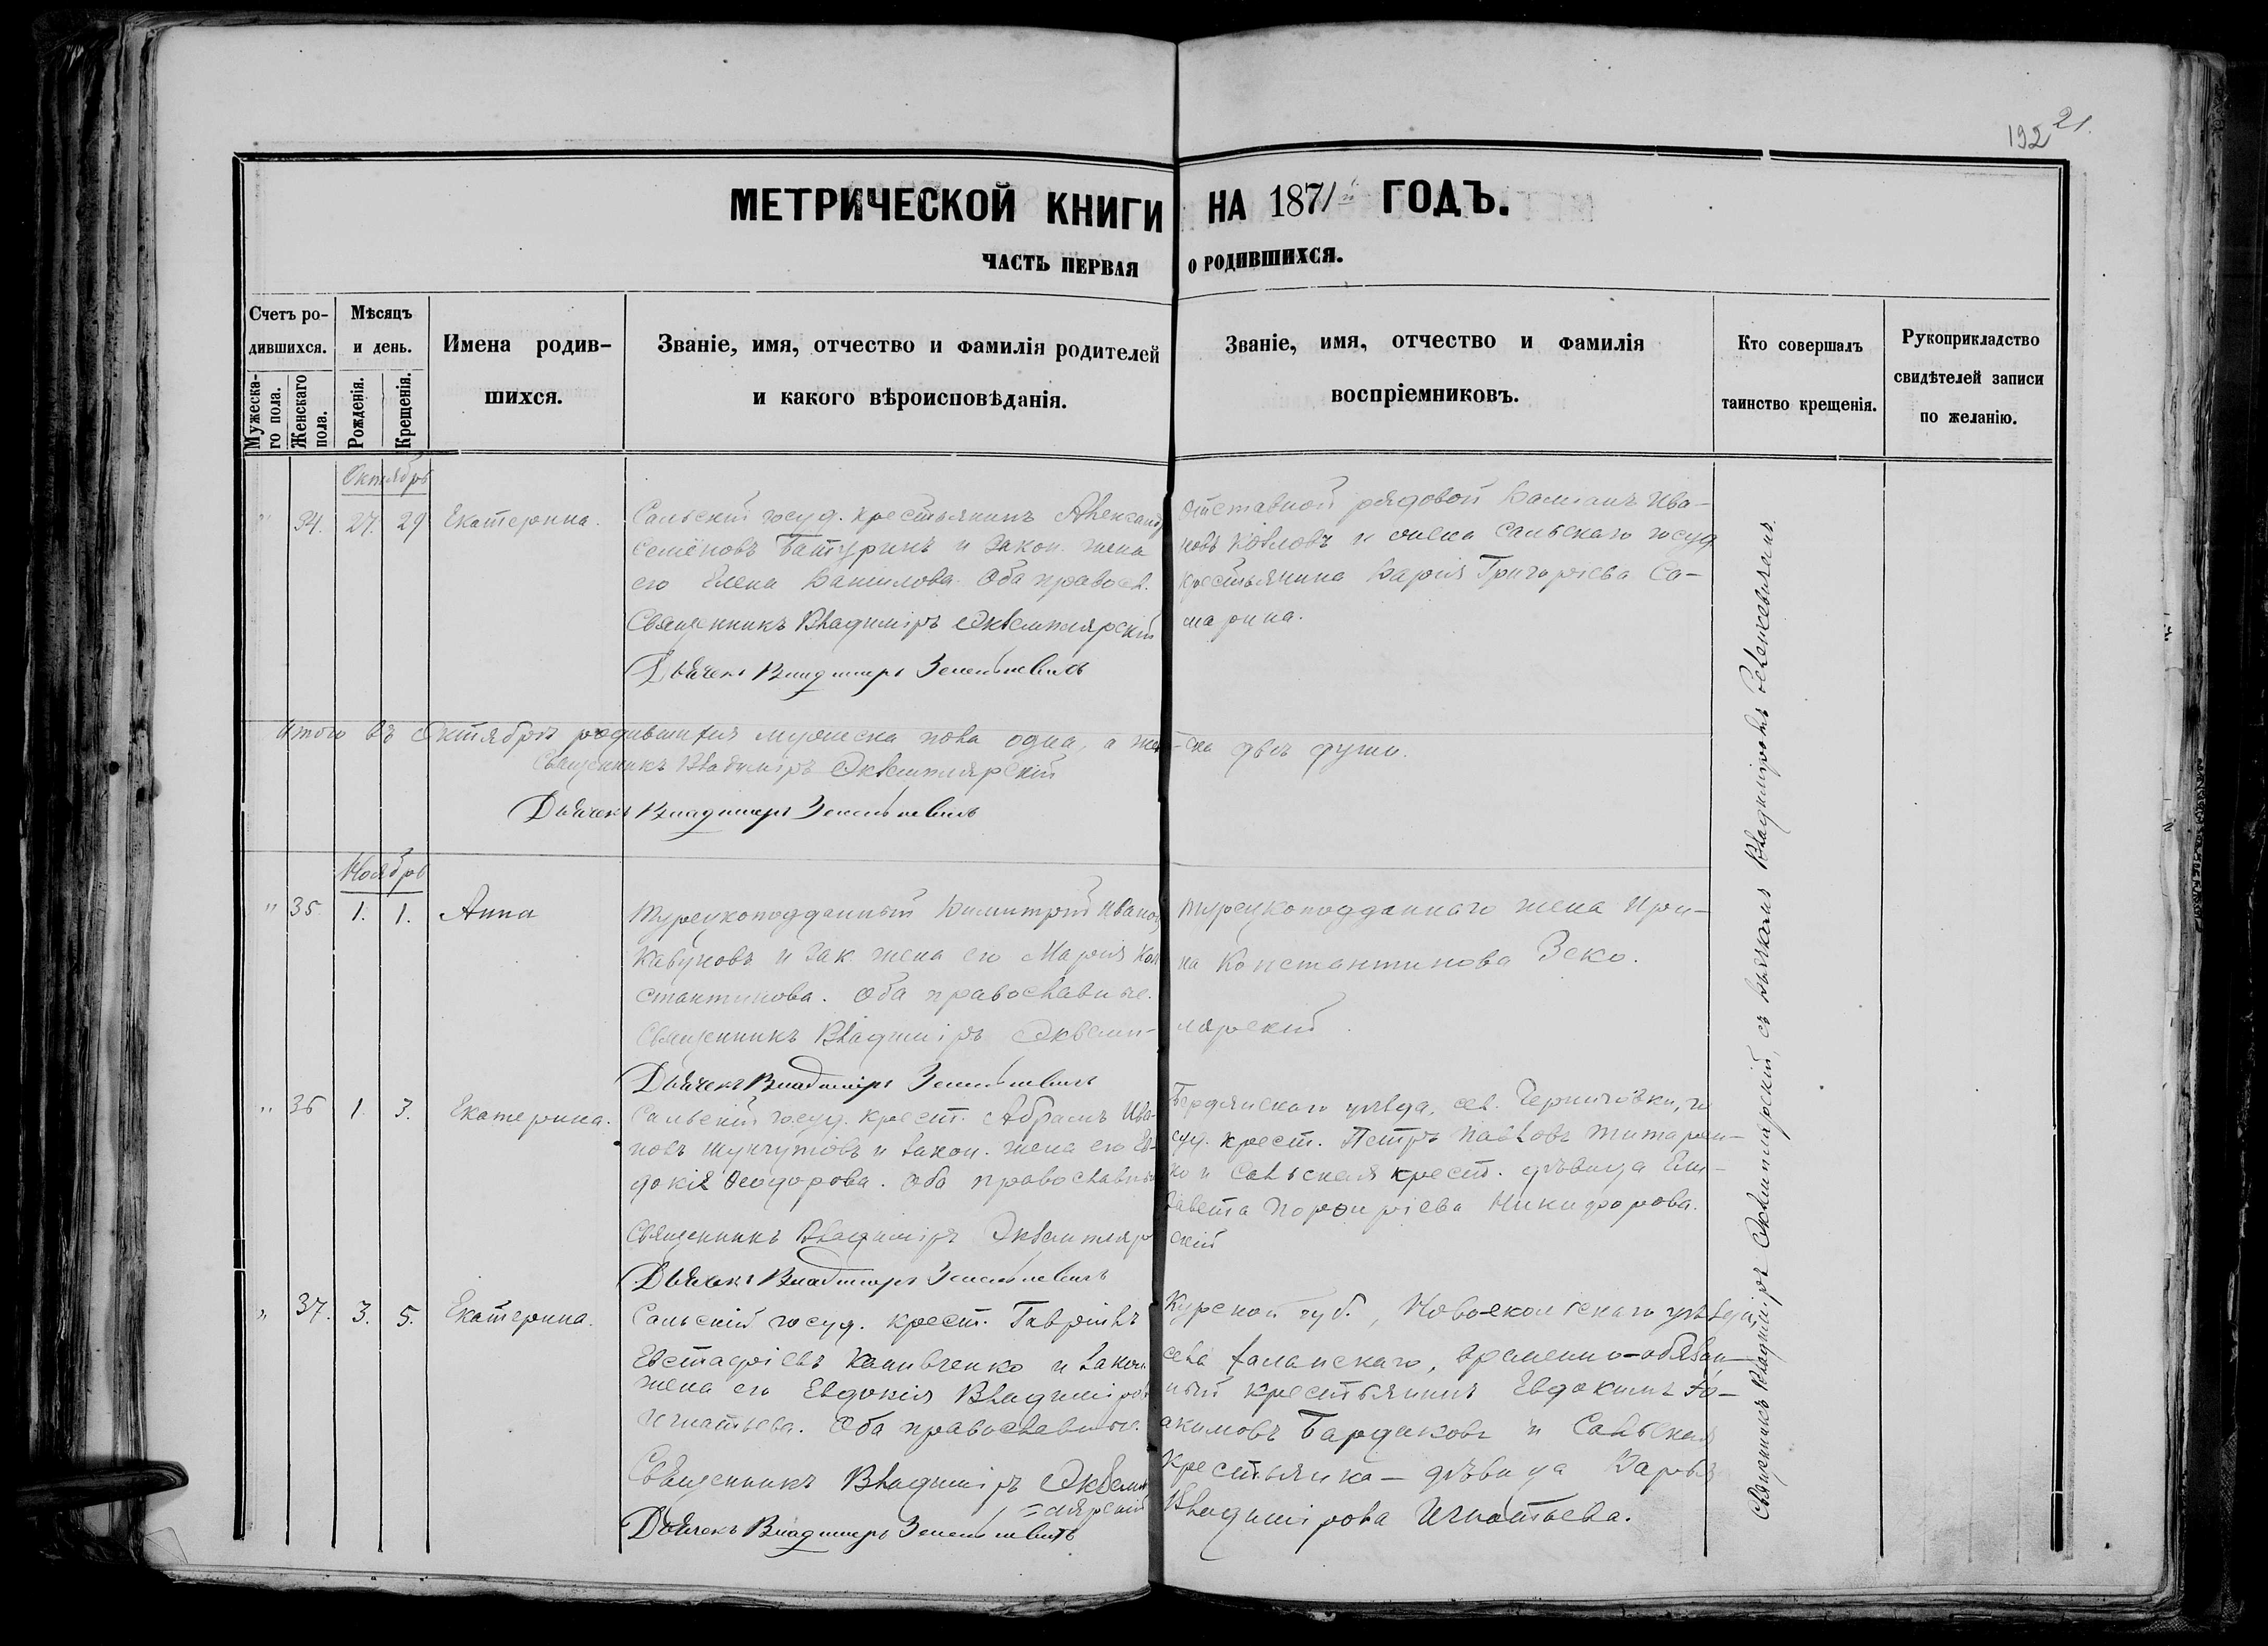 192 21.
МЕТРИЧЕСКОЙ КНИГИ НА 1871й ГОДЪ.
ЧАСТЬ ПЕРВАЯ О РОДИВШИХСЯ.
Счетъ ро-
дившихся.
Мужеска-
го пола.
Женскаго
пола.
Мѣсяцъ
и день.
Рожденія.
Крещенія.
Имена родив-
шихся.
Званіе, имя, отчество и фамилія родителей
и какого вѣроисповѣданія.
Званіе, имя, отчество и фамилія
воспріемниковъ.
Кто совершалъ
таинство крещенія.
Рукоприкладство
свидѣтелей записи
по желанію.
Октябрь
" 34. 27. 29 Екатерина.
Сальскій госуд. крестьянинъ Александ
Семеновъ Батуринъ и закон. жена
его Елена Данилова. Оба правосл.
Священникъ Владиміръ Экземплярскій
Дьячекъ Владимиръ
отставной рядовой Даміанъ Ива-
новъ Козловъ и жена Сальскаго госуд
крестьянина Дарія Григоріева Са-
марина.
Итого въ Октябрѣ родившихся мужеска пола одна, а жен-ска двѣ души.
Священникъ Владиміръ Экземплярскій
Дьячекъ Владимиръ
Ноябрь
" 35 1. 1. Анна
Турецкоподданный Димитрій Иванов
Кавуновъ и зак. жена его Марія Кон
стантинова. Оба православные.
Священникъ Владиміръ Экземп-лярскій.
Дьячекъ Владиміръ
Турецкоподданнаго жена Ири-
на Константинова Зеко.
" 36 1. 3. Екатерина.
Сальскій госуд. крест. Абрамъ Ива-
новъ и закон. жена его Ев-
докія Ѳеодорова. Оба православные
Священникъ Владиміръ Экземпляр скій
Дьячекъ Владимиръ
Бердянскаго уѣзда, сел. Черниговки, го
суд. крест. Петръ Павловъ Титарен-
ко и Сальская крест. дѣвица Ели-
завета Порфиріева Никифорова.
" 37. 3. 5. Екатерина.
Сальскій госуд. крест. Гавріилъ
Евстафіевъ Канивченко и закон
жена его Евдокія Владиміров
Игнатьева. Оба православные.
Священникъ Владиміръ Экземп
=лярскій
Дьячекъ Владимиръ
Курской губ., Ново-скольскаго уѣзда,
села Халанскаго, временно-обязан-
ный крестьянинъ Евдокимъ Іо-
акимовъ Бардаковъ и Сальская
крестьянка - дѣвица Дарья
Владимірова Игнатьева.
Священникъ Владиміръ Экземплярскій, съ дьячкомъ Владиміромъ